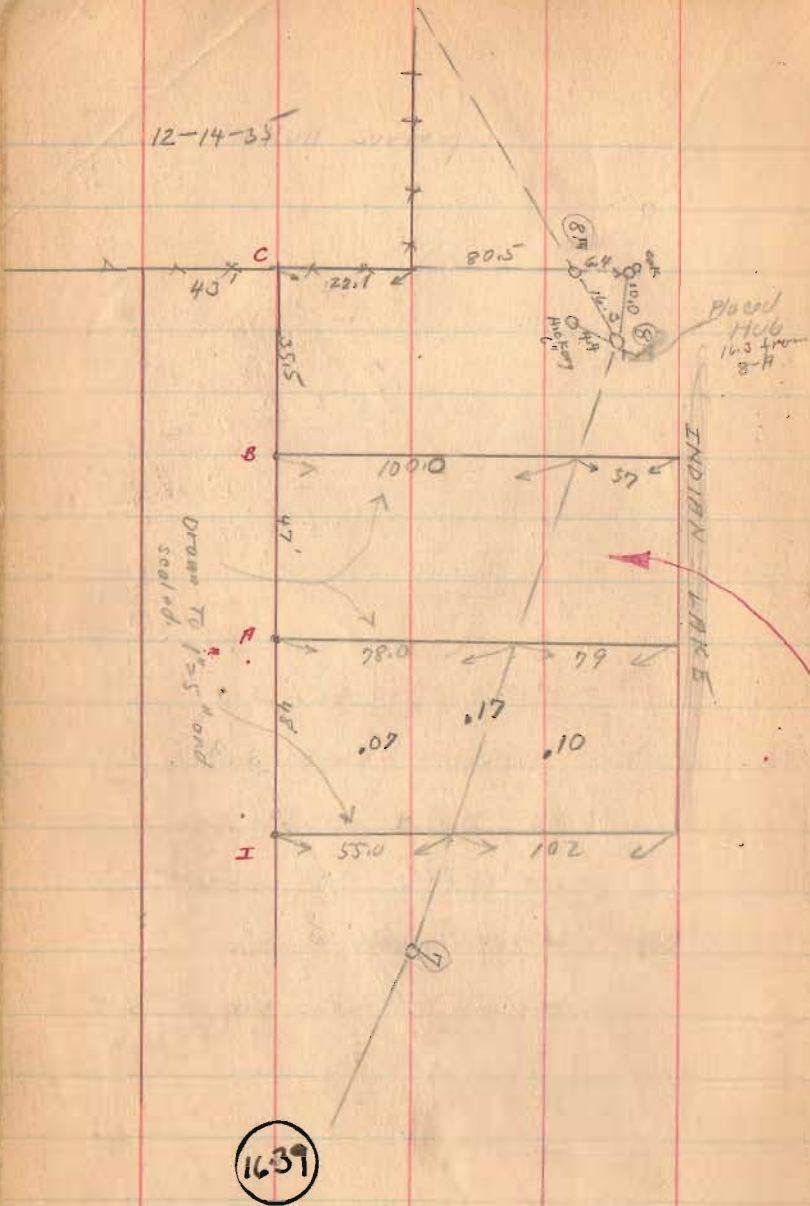 12-14-35
C
43
22.1
80.5
8A
6.4
oak
10.0
16.3
8
Hickory
6"
4.4
Placed
HUB
16.3 from
8-A
35.5
INDIAN LAKE
B
100.0
57
47'
Drawn To 1"=5" and
scaled.
A
78.0
79
48'
.07
.17
.10
I
55.0
102
7
16-39